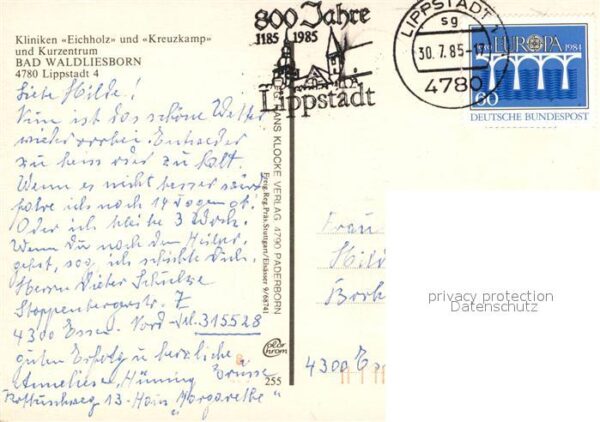 Kliniken «Eichholz» und «Kreuzkamp»
und Kurzentrum
BAD WALDLIESBORN
4780 Lippstadt 4
800 Jahre
1185 1985
Lippstadt
LIPPSTADT 1
sg
30.7.85-17
4780
EUROPA
1959 1984
60
DEUTSCHE BUNDESPOST
Liebe Hilde!
Nun ist das schöne Wetter
wieder vorbei. Entweder
zu heiss oder zu kalt.
Wenn es nicht besser wird
fahre ich nach 14 Tagen ab.
Oder ich bleibe 3 Woch.
Wenn Du nach dem
gehst, sag, ich schickte Dich.
Herrn Dieter Schulze
Stoppenbergerstr. 7
4300 Essen. Nord-Tel. 315528
guten Erfolg u. herzliche
Grüsse
Annelies Hüning
13-Haus "Margarethe"
HANS KLOCKE VERLAG 4790 PADERBORN
Freig. Reg. Präs. Stuttgart/Elsässer 9/68741
color
chrom
255
Frau
Hild
Bork
4300 Es
privacy protection
Datenschutz